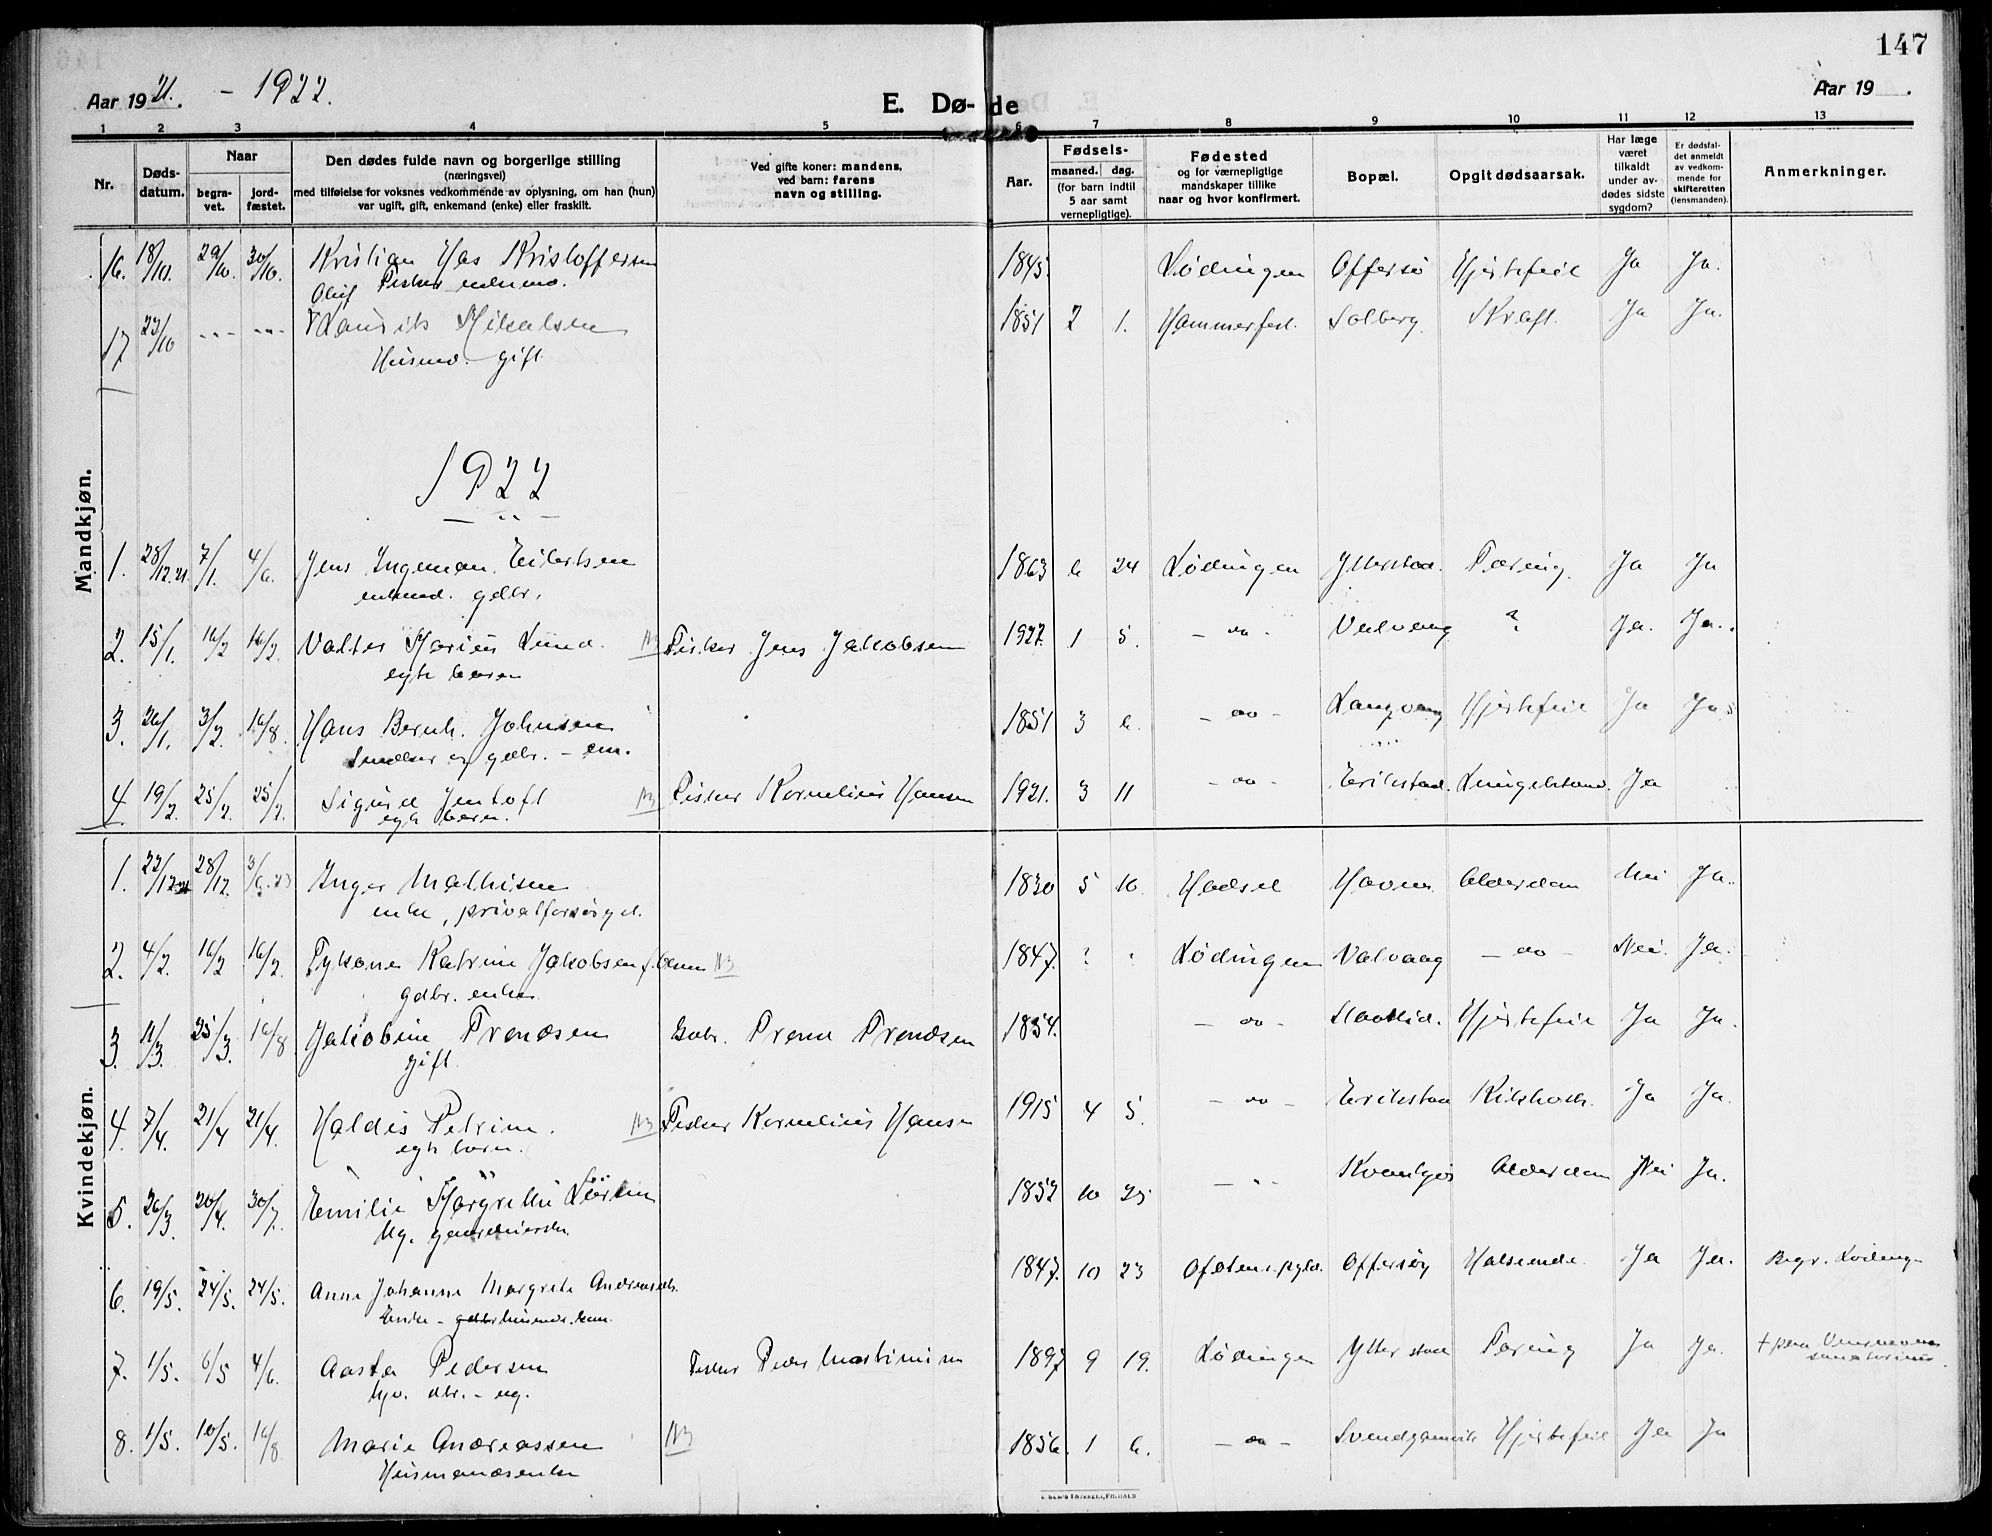 147
Aar 1921. - 1922.
E. Dø- de
Aar 19 .
1 2 3 4 5 6 7 8 9 10 11 12 13
Nr.
Døds-
datum.
Naar
begra-
vet.
jord-
fæstet.
Den dødes fulde navn og borgerlige stilling
(næringsvei)
med tilføielse for voksnes vedkommende av oplysning, om han (hun)
var ugift, gift, enkemand (enke) eller fraskilt.
Ved gifte koner: mandens,
ved barn: farens
navn og stilling.
Aar.
Fødsels-
maaned. dag.
(for barn indtil
5 aar samt
vernepligtige).
Fødested
og for værnepligtige
mandskaper tillike
naar og hvor konfirmert.
Bopæl.
Opgit dødsaarsak.
Har læge
været
tilkaldt
under av-
dødes sidste
sygdom?
Er dødsfal-
det anmeldt
av vedkom-
mende for
skifteretten
(lensmanden).
Anmerkninger.
Mandkjøn.
16. 18/10. 29/10. 30/10. Kristian Kristoffersen 1845 Lødingen Offersø Hjertefeil Ja Ja.
Fisker enkem.
17 23/10 -"- -"- Mikalsen 1851 2 1. Hammerfest. Solberg. Kræft. Ja Ja.
Husmd. gift
1922
1. 28/12.21. 7/1. 4/6. Jens Ingeman Eilertsen 1863 6 24 Lødingen Ytterstad. Tæring. Ja Ja
enkemd. gdbr.
2. 15/1. 16/2 16/2. Valter Marius Lund. NB Fisker Jens Jakobsen 1922. 1 5. - do - ? Ja. Ja.
egte barn
3. 26/1. 3/2. 16/8. Hans Bernh. Johnsen 1851 3 6. - do - Langvaag Hjertefeil Ja Ja
Snedker og gdbr. - em.
4. 19/2. 25/2. 25/2. Sigurd Jentoft NB Fisker Kornelius Hansen 1921. 3 11 - do - Erikstad. Ja
egte barn.
Kvindekjøn.
1. 22/12 21 28/12. 3/6.23 Inger Mathisen 1830 5 10. Hadsel Alderdom Nei Ja.
enke, privatforsørget.
2. 4/2. 16/2 16/2. Katrine Jakobsen f. Olsen NB 1847. ? Lødingen Valvaag - do - Nei. Ja.
gdbr. enke.
3. 11/3. 25/3. 16/8 Jakobine Trondsen Gdbr. Trond Trondsen 1854. - do - Hjertefeil Ja Ja.
gift.
4. 7/4. 21/4 21/4. Haldis Petrine. NB Fisker Kornelius Hansen 1915 4 5. - do - Erikstad Kikhoste. Ja Ja.
egte barn.
5. 26/3. 20/4. 30/7. Emilie Margrethe 1852 10 25 - " - Alderdom Nei Ja.
Ug.
6. 19/5. 24/5. 24/5. Anne Johanne Margrete Andreasdtr. 1847. 10 23 Ofoten Offersøy Ja Ja. Begr. Lødingen
Enke -
7. 1/5. 6/5 4/6. Aasta Pedersen Fisker Peder Martinussen 1897 9 19. Lødingen Ytterstad Tæring Ja Ja.
ug.
8. 1/5. 10/5. 16/8. Marie Andreassen NB 1856. 1 6. - do - Hjertefeil Ja Ja
Husmandsenke